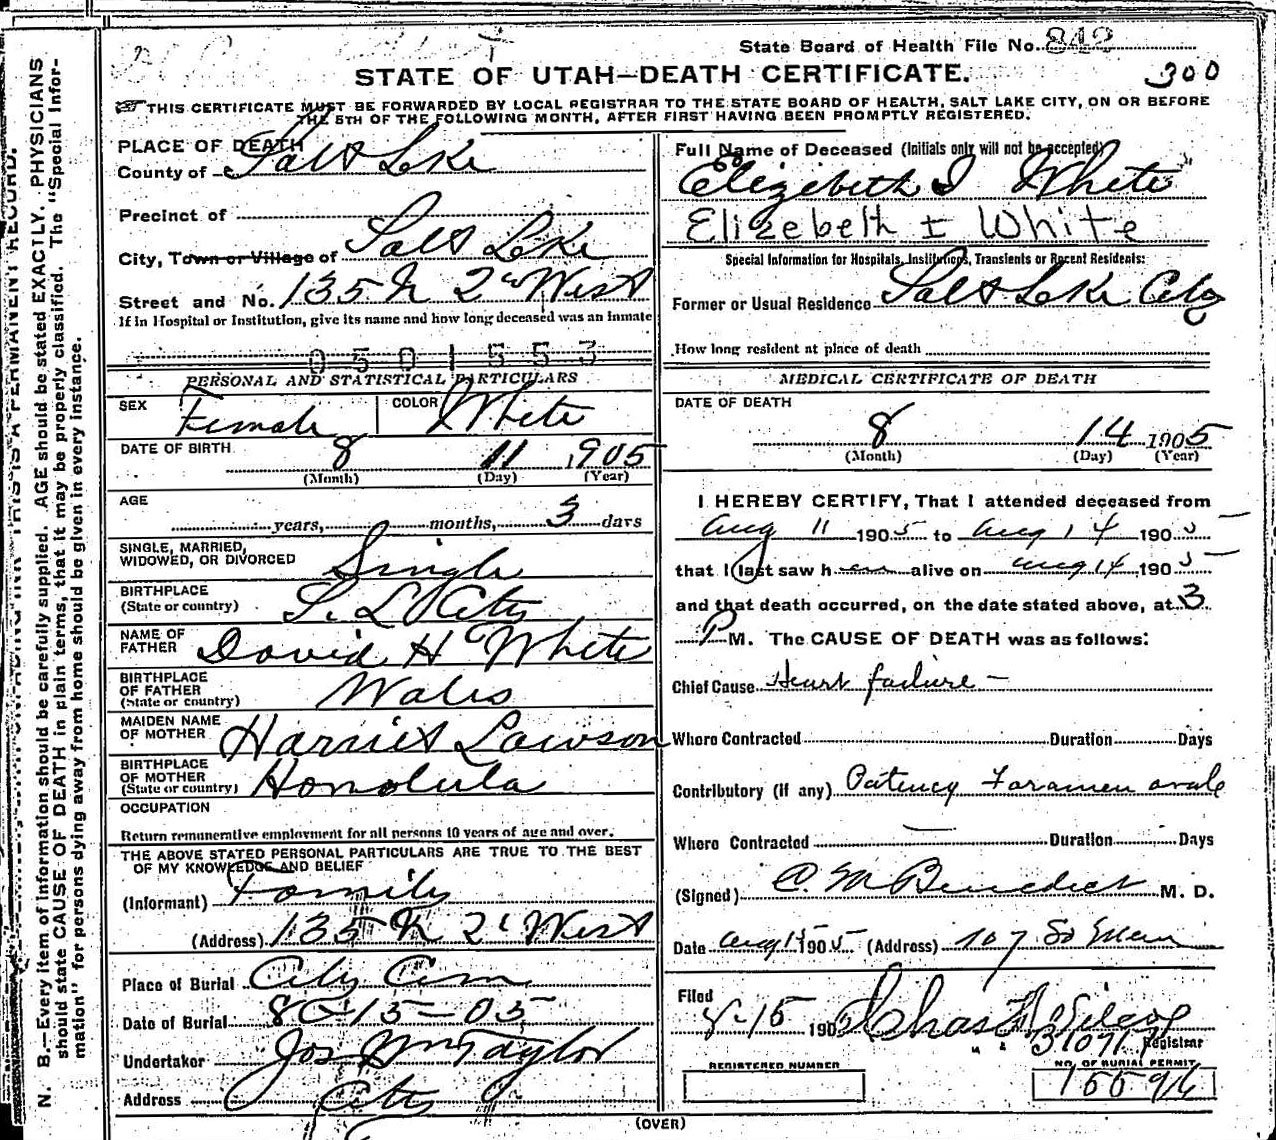 State Board of Health File No. 842
STATE OF UTAH—DEATH CERTIFICATE.
300
THIS CERTIFICATE MUST BE FORWARDED BY LOCAL REGISTRAR TO THE STATE BOARD OF HEALTH, SALT LAKE CITY, ON OR BEFORE
THE 5TH OF THE FOLLOWING MONTH, AFTER FIRST HAVING BEEN PROMPTLY REGISTERED.
PLACE OF DEATH
County of Salt Lake
Precinct of
City, Town or Village of Salt Lake
Street and No. 135 N 2d West
If in Hospital or Institution, give its name and how long deceased was an inmate
0501553
PERSONAL AND STATISTICAL PARTICULARS
SEX Female COLOR White
DATE OF BIRTH 8 11 1905
(Month) (Day) (Year)
AGE
years, months, 3 days
SINGLE, MARRIED,
WIDOWED, OR DIVORCED Single
BIRTHPLACE
(State or country) S. L. City
NAME OF
FATHER David H White
BIRTHPLACE
OF FATHER
(State or country) Wales
MAIDEN NAME
OF MOTHER Harriet Lawson
BIRTHPLACE
OF MOTHER
(State or country) Honolula
OCCUPATION
Return remunerative employment for all persons 10 years of age and over.
THE ABOVE STATED PERSONAL PARTICULARS ARE TRUE TO THE BEST
OF MY KNOWLEDGE AND BELIEF
(Informant) Family
(Address) 135 N 2d West
Place of Burial City Cem
Date of Burial 8-15-05
Undertaker Jos Wm Taylor
Address City
Full Name of Deceased (Initials only will not be accepted)
Elizebeth I White
Elizebeth I White
Special Information for Hospitals, Institutions, Transients or Recent Residents:
Former or Usual Residence Salt Lake City
How long resident at place of death
MEDICAL CERTIFICATE OF DEATH
DATE OF DEATH
8 14 1905
(Month) (Day) (Year)
I HEREBY CERTIFY, That I attended deceased from
Aug 11 1905 to Aug 14 1905
that I last saw her alive on Aug 14, 1905
and that death occurred, on the date stated above, at 3
P M. The CAUSE OF DEATH was as follows:
Chief Cause Heart failure —
Where Contracted Duration Days
Contributory (if any) Patency Foramen ovale
Where Contracted — Duration Days
(Signed) C. M. Benedict M. D.
Date Aug 15 1905 (Address) 107 So Main
Filed
8-15 190 Chas Wilcox
Registrar
REGISTERED NUMBER
NO. OF BURIAL PERMIT
(OVER)
N. B.—Every item of information should be carefully supplied. AGE should be stated EXACTLY. PHYSICIANS
should state CAUSE OF DEATH in plain terms, that it may be properly classified. The "Special Infor-
mation" for persons dying away from home should be given in every instance.
THIS IS A PERMANENT RECORD.